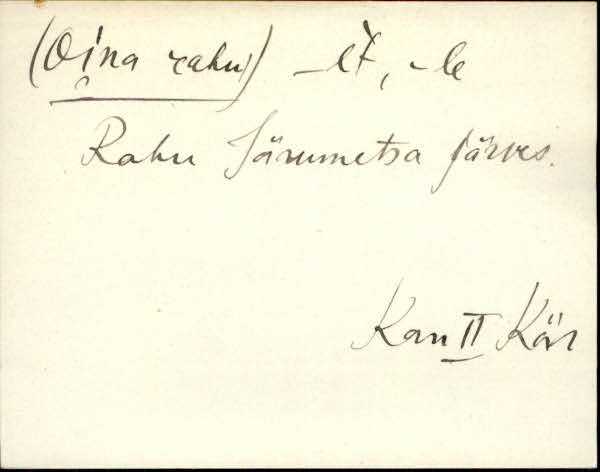 (Oi̯na rahu) -lt, -le
Rahu Järumetsa järves.
Kan II Kär